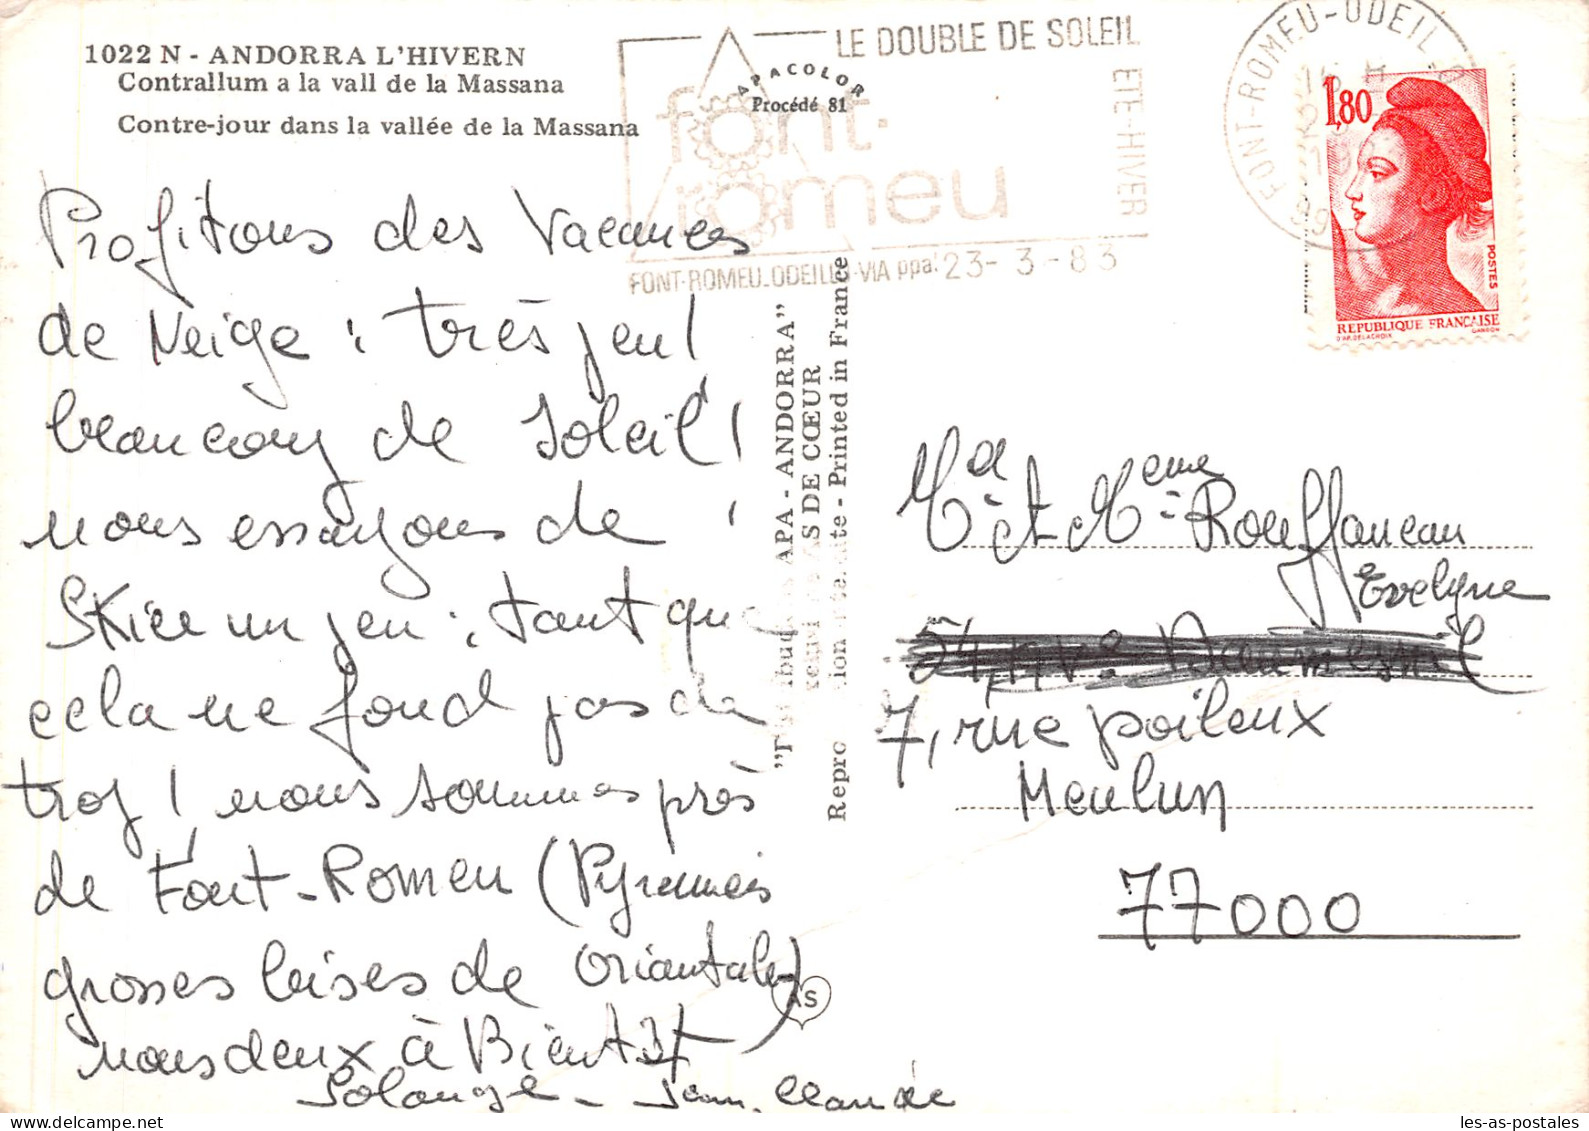 1022 N - ANDORRA L'HIVERN
Contrallum a la vall de la Massana
Contre-jour dans la vallée de la Massana
APACOLOR
Procédé 81
LE DOUBLE DE SOLEIL
ETE-HIVER
font-
romeu
FONT-ROMEU-ODEILLO-VIA ppal 23-3-83
FONT-ROMEU-ODEILLO
1,80
POSTES
REPUBLIQUE FRANÇAISE
D'AP. DELACROIX GANDON
Profitons des Vacances
de Neige : très peu !
beaucoup de soleil !
nous essayons de !
Skier un peu : tant que
cela ne fond pas de
trop ! nous sommes près
de Font-Romeu (Pyrennéis
grosses beises de Oriantales)
nous deux à Bientôt
Solange - Jean. Claude
APA - ANDORRA"
AS DE CŒUR
Printed in France
AS
Mr et Mme Rouffaneau
Evelyne
7, rue poileux
Meulun
77000
les-as-postales